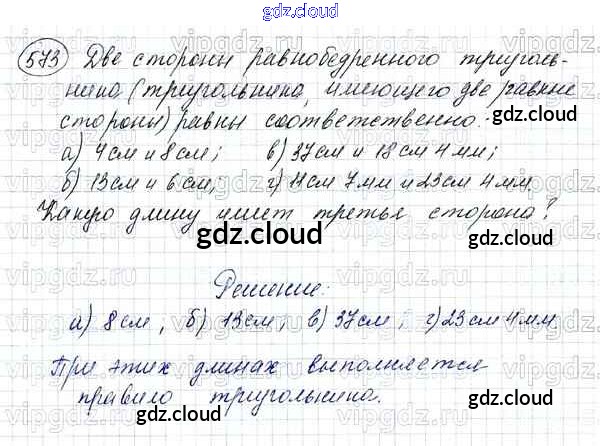 gdz.cloud
573 Две стороны равнобедренного треуголь-
ника (треугольника, имеющего две равные
стороны) равны соответственно:
gdz.cloud
а) 4 см и 8 см; в) 37 см и 18 см 4 мм;
б) 13 см и 6 см; г) 11 см 7 мм и 23 см 4 мм.
gdz.cloud
gdz.cloud
Какую длину имеет третья сторона?
gdz.cloud
Решение:
gdz.cloud
а) 8 см; б) 13 см; в) 37 см; г) 23 см 4 мм.
gdz.cloud
gdz.cloud
При этих длинах выполняется
правило треугольника.
gdz.cloud
gdz.cloud